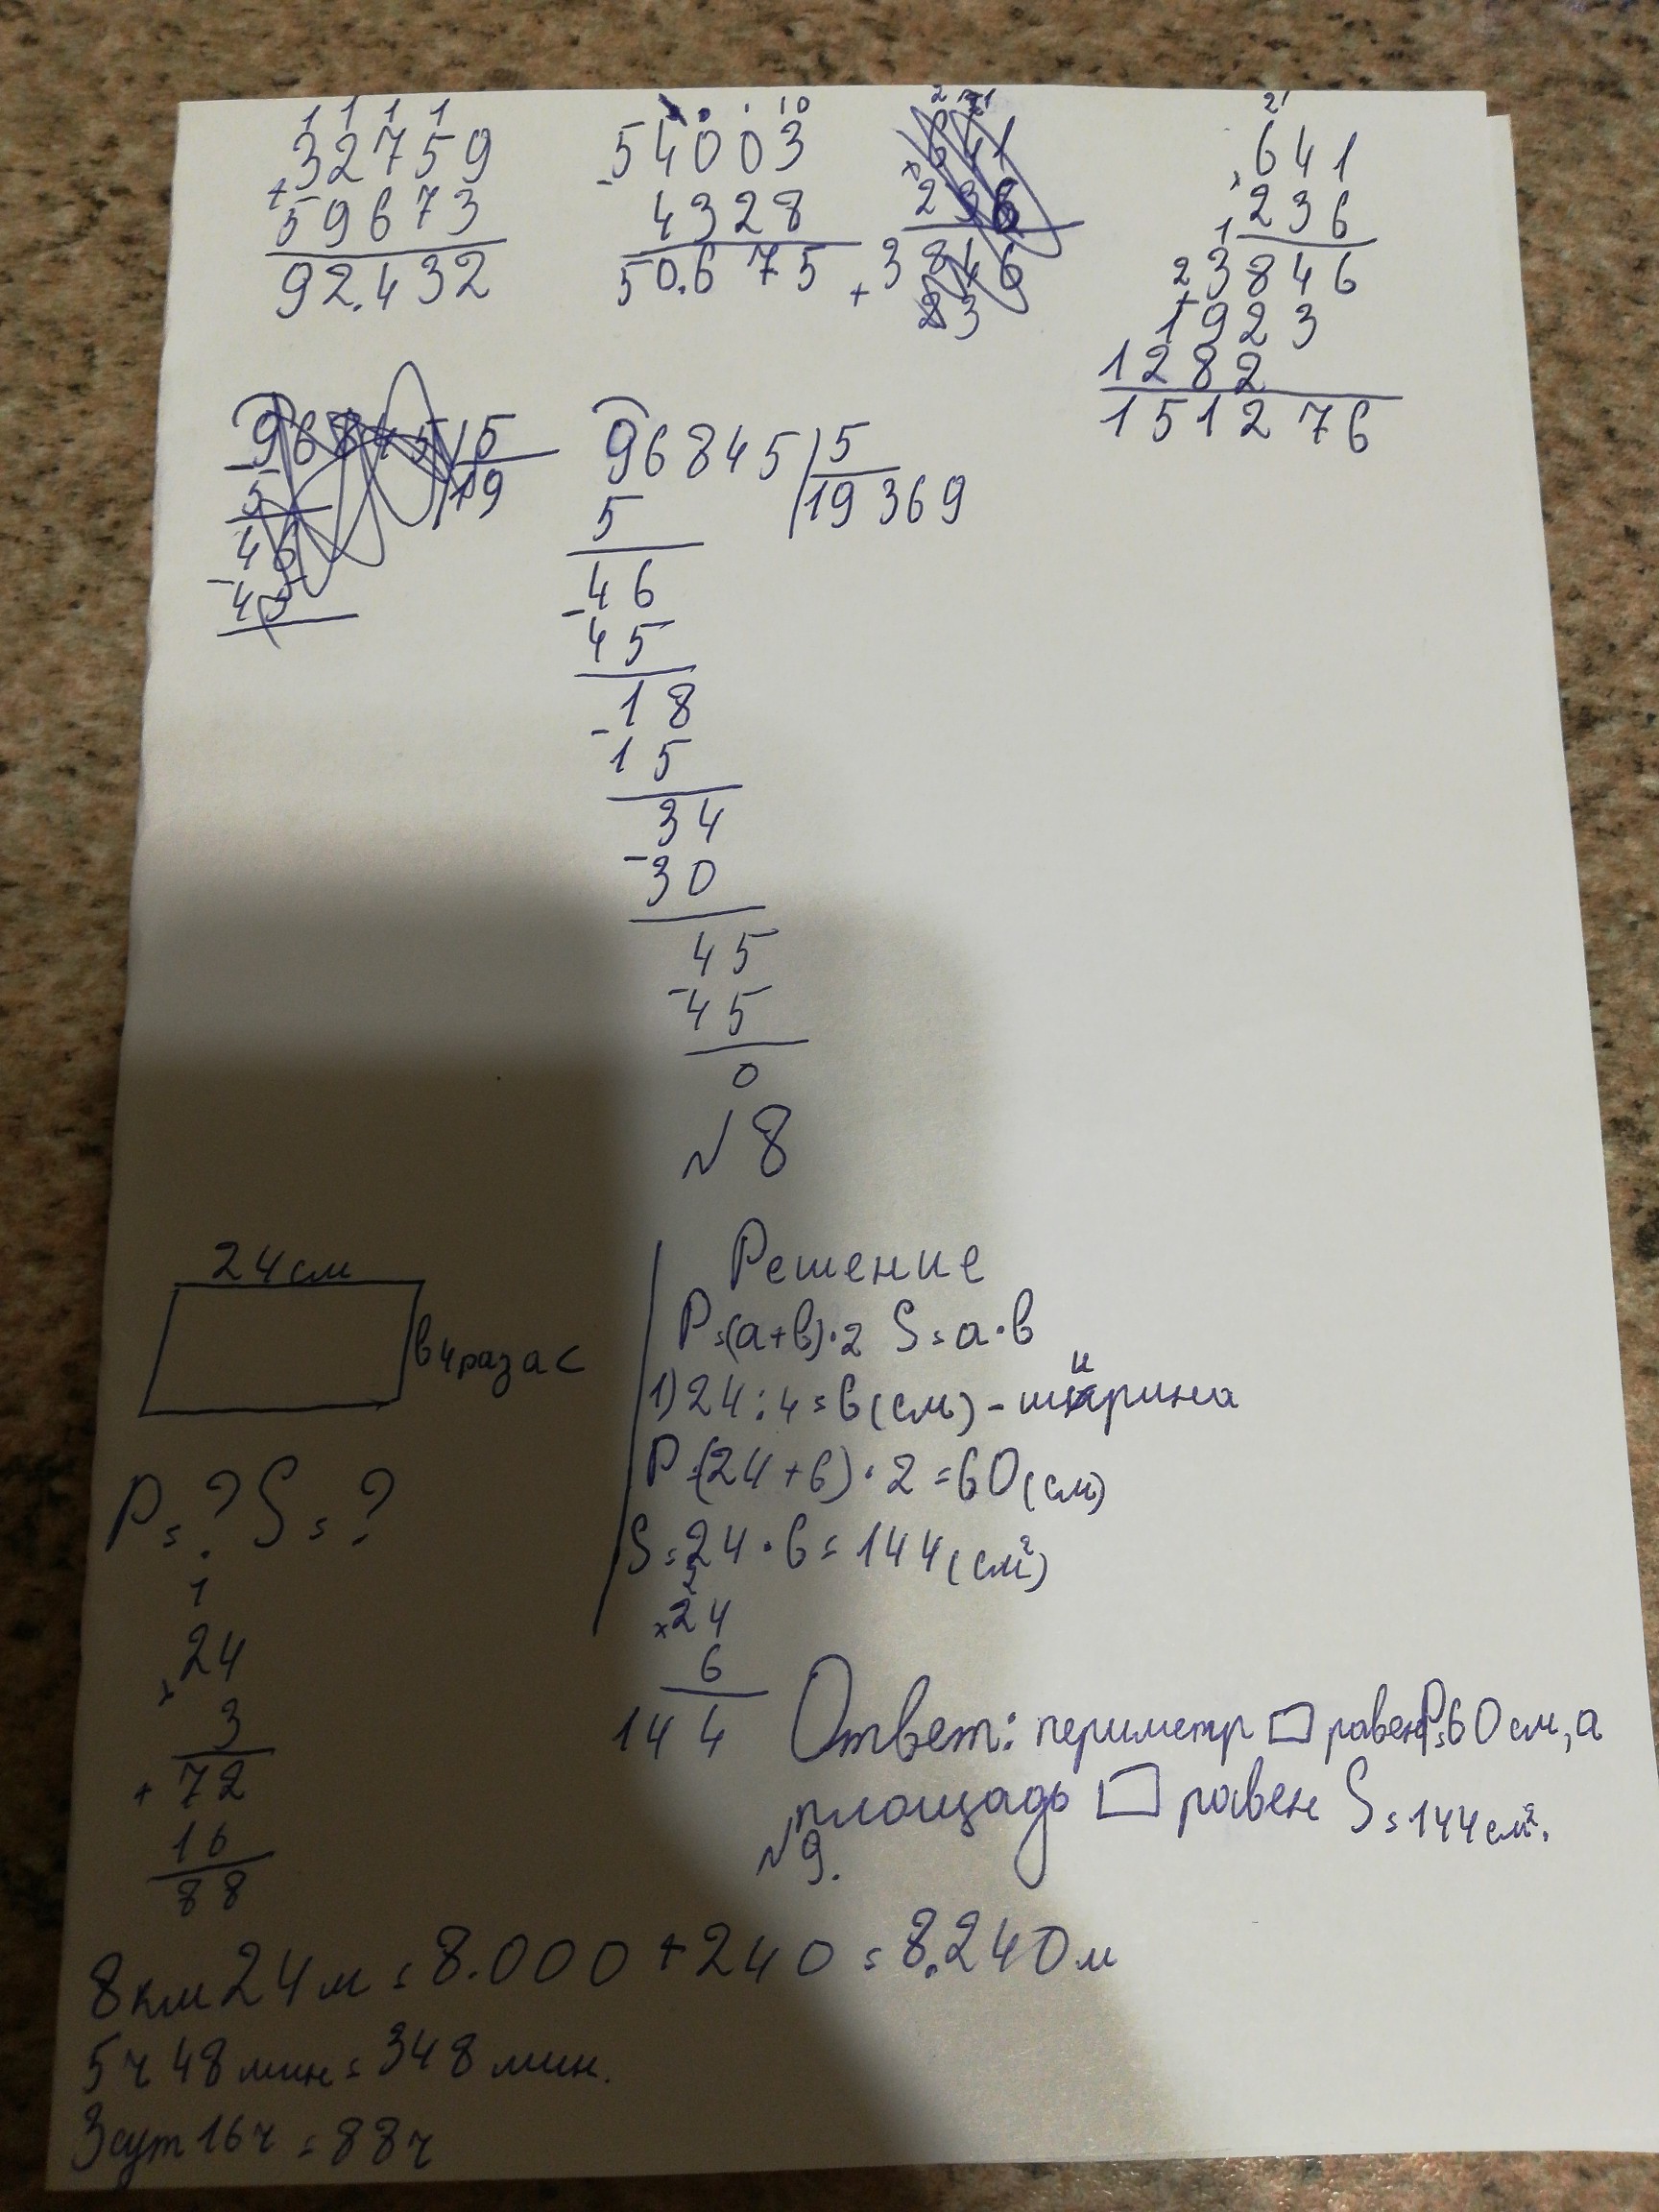 1 1 1 1
32759
+
59673
92.432
10
54003
-
4328
50.675
641
×
236
+ 3846
83
21
641
×
236
1
23846
+
1923
1282
151276
96845 5
- 5 19
46
- 45
96845 5
5 19369
46
- 45
18
- 15
34
- 30
45
- 45
0
N 8
24 см
в 4 раза <
P = ? S = ?
Решение
P=(a+b)·2 S=a·b
1) 24:4=6(см) - ширина
P=(24+6)·2=60(см)
S=24·6=144(см²)
2
× 24
6
144
1
24
×
3
+ 72
16
88
Ответ: периметр ▭ равен P=60см, а
площадь ▭ равен S=144см².
N 9.
8км24м=8.000+240=8.240м
5ч48мин=348мин.
3сут16ч=88ч